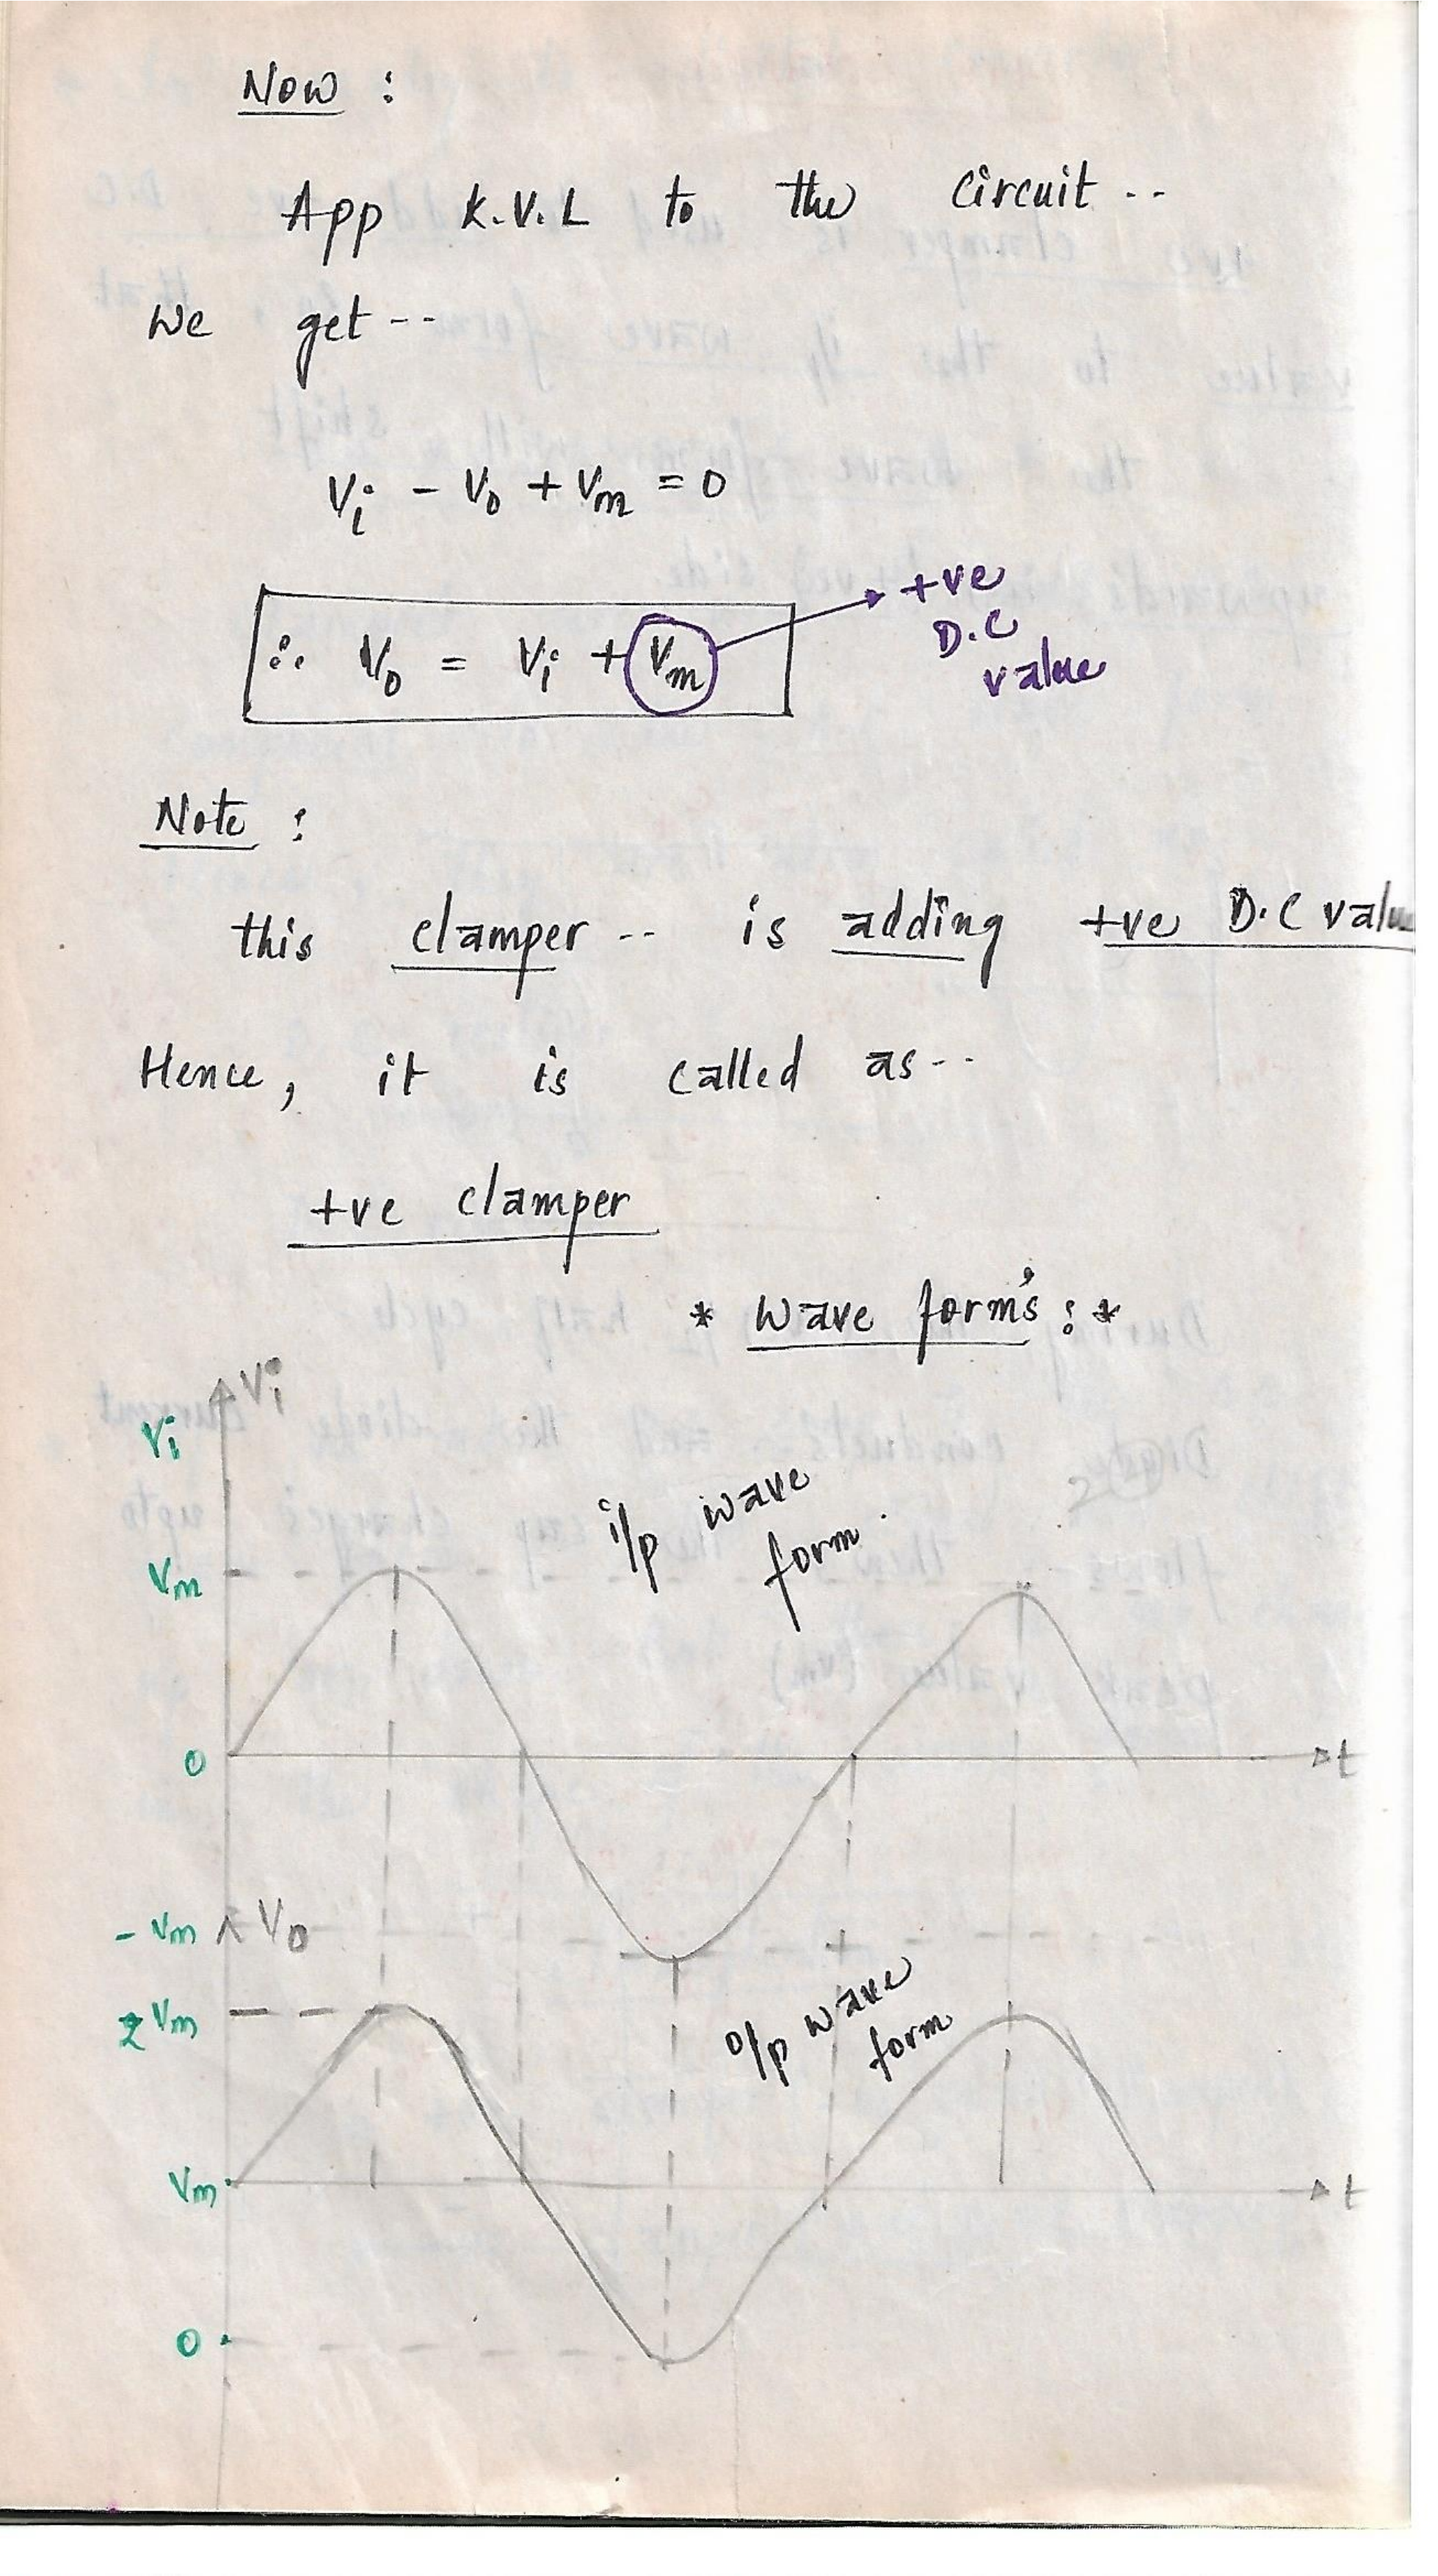 Now :
App K.V.L to the circuit --
we get --
Vi - Vo + Vm = 0
∴ Vo = Vi + Vm
+ve
D.C
value
Note :
this clamper -- is adding +ve D.C value
Hence, it is called as --
+ve clamper
* Wave form's : *
Vi
Vi
i/p wave
form
Vm
0
t
- Vm
Vo
2Vm
o/p wave
form
Vm
t
0